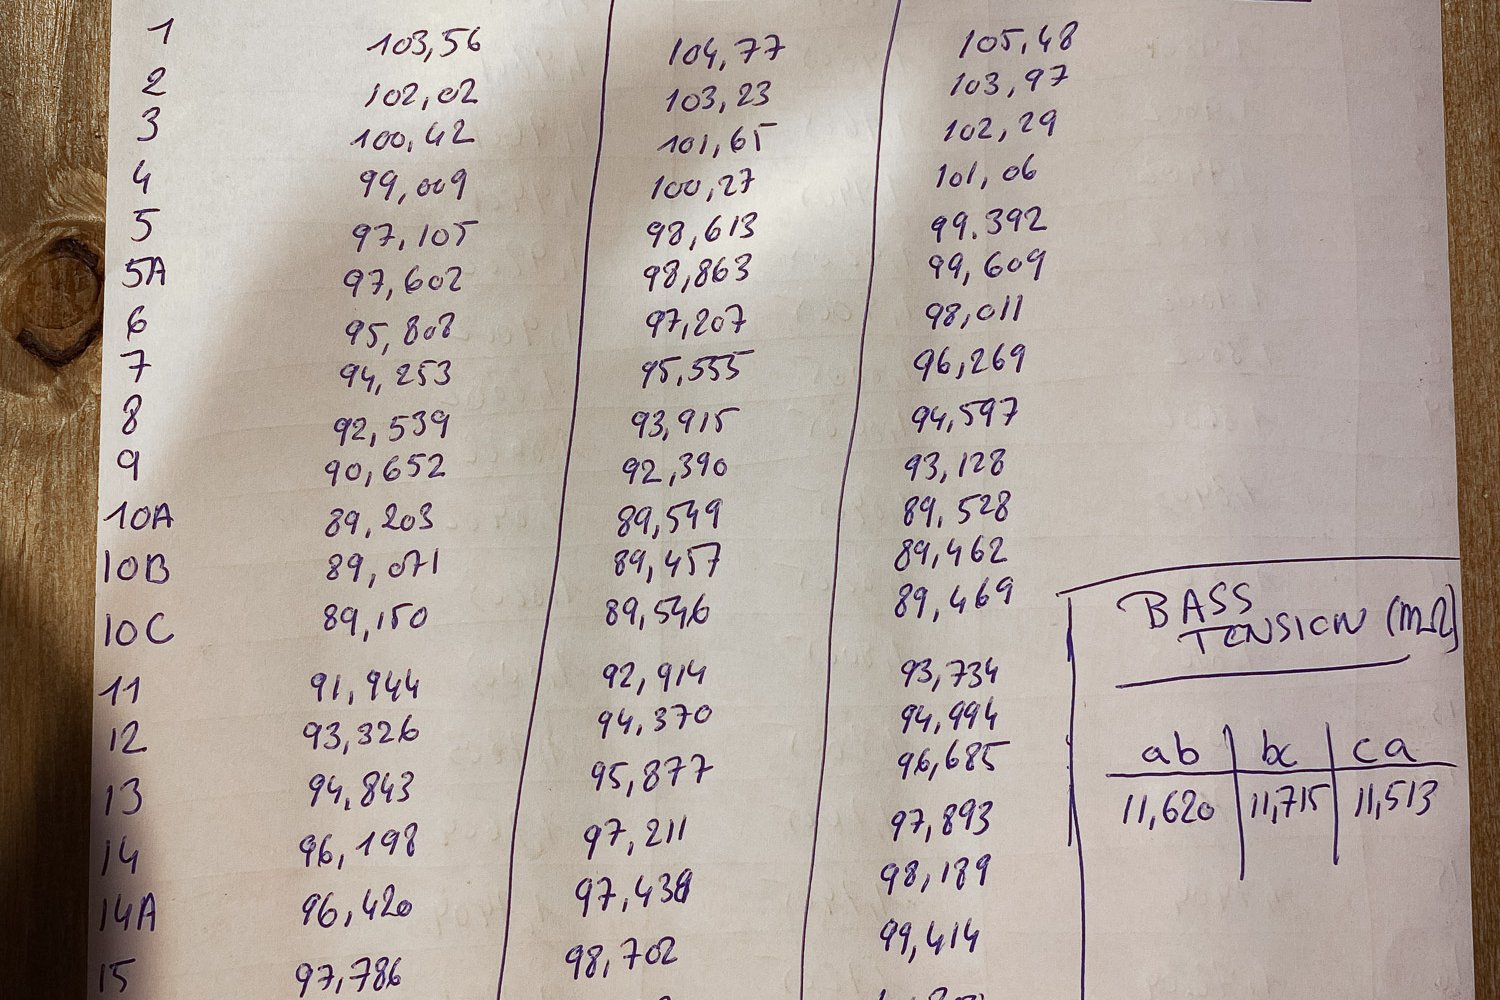 1 103,56 104,77 105,48
2 102,02 103,23 103,97
3 100,42 101,65 102,29
4 99,009 100,27 101,06
5 97,105 98,613 99.392
5A 97,602 98,863 99,609
6 95,808 97,207 98,011
7 94,253 95,555 96,269
8 92,539 93,915 94,597
9 90,652 92,390 93,128
10A 89,203 89,549 89,528
10B 89,071 89,457 89,462
10C 89,150 89,546 89,469
11 91,944 92,914 93,734
12 93,326 94,370 94,994
13 94,843 95,877 96,685
14 96,198 97,211 97,893
14A 96,420 97,438 98,189
15 97,786 98,702 99,414
BASS
TENSION (mΩ)
ab bc ca
11,620 11,715 11,513